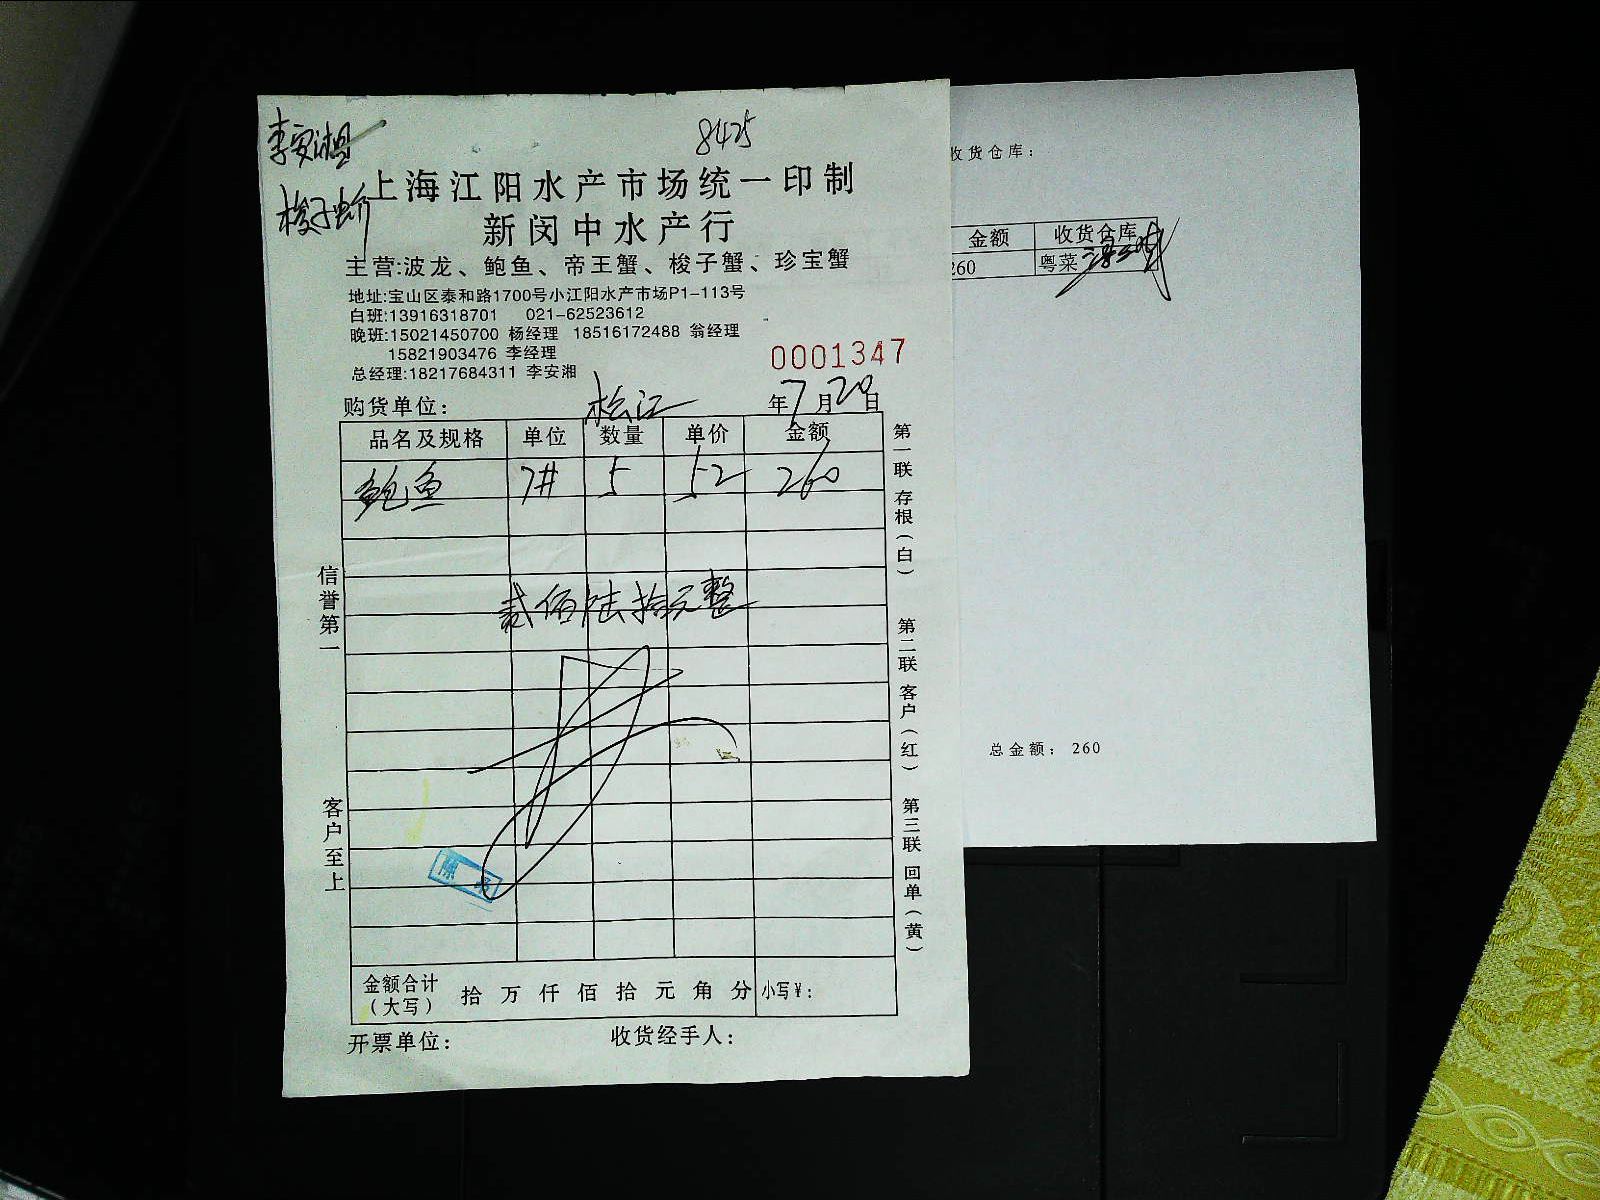 李安湘
8425
梭子蟹
上海江阳水产市场统一印制
新闵中水产行
主营:波龙、鲍鱼、帝王蟹、梭子蟹、珍宝蟹
地址:宝山区泰和路1700号小江阳水产市场P1-113号
白班:13916318701 021-62523612
晚班:15021450700 杨经理 18516172488 翁经理
15821903476 李经理
总经理:18217684311 李安湘
0001347
购货单位: 松江 年7月20日
品名及规格 单位 数量 单价 金额
鲍鱼 7# 5 52 260
贰佰陆拾元整
金额合计(大写) 拾 万 仟 佰 拾 元 角 分 小写¥:
开票单位: 收货经手人:
信誉第一
客户至上
第一联 存根(白)
第二联 客户(红)
第三联 回单(黄)
收货仓库:
金额 收货仓库
260 粤菜
总金额: 260